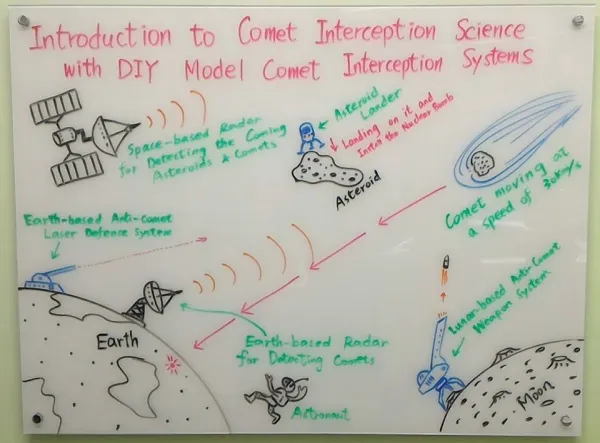 Introduction to Comet Interception Science
with DIY Model Comet Interception Systems
Space-based Radar
for Detecting the Coming
Asteroids & Comets
Asteroid
Lander
Landing on it and
the Nuclear Bomb
Asteroid
Comet moving at
a speed of 30km/s
Earth-based Anti-Comet
Laser Defence System
Earth
Earth-based Radar
for Detecting Comets
Astronaut
Lunar-based Anti-Comet
Weapon System
Moon